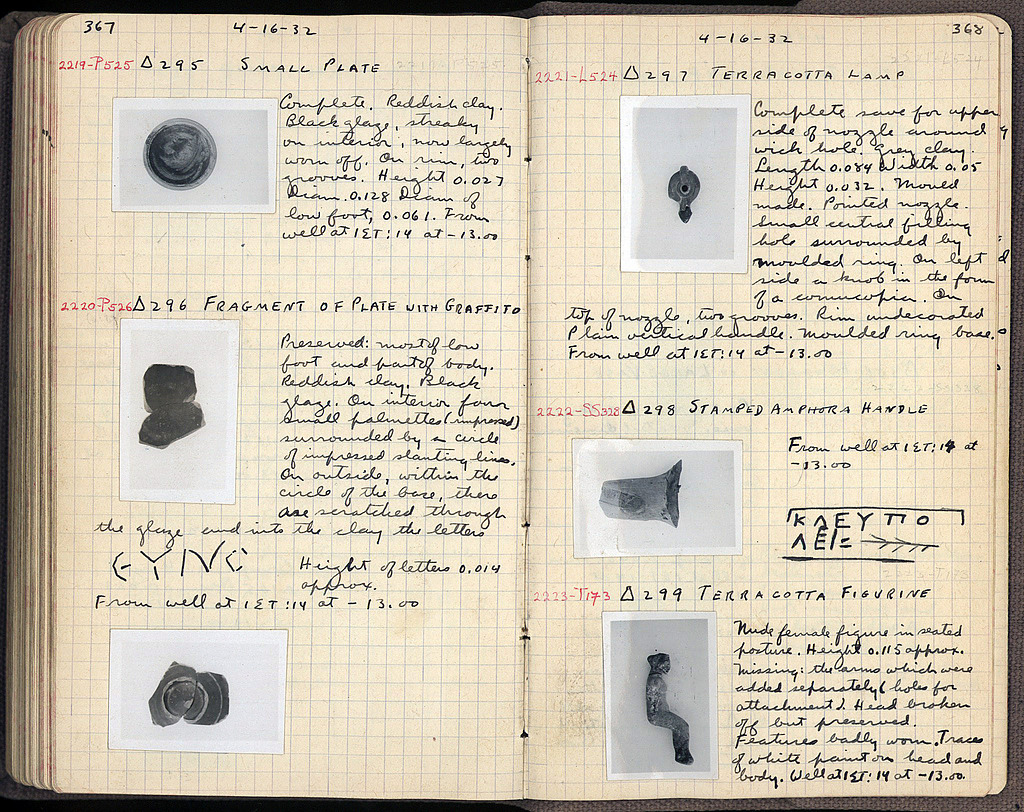 367
4-16-32
2219-P525 Δ295 SMALL PLATE
Complete. Reddish clay.
Black glaze, streaky
on interior, now largely
worn off. On rim, two
grooves. Height 0.027
Diam. 0.128 Diam of
low foot, 0.061. From
well at 1ΣΤ:14 at -13.00
2220-P526 Δ296 FRAGMENT OF PLATE WITH GRAFFITO
Preserved: most of low
foot and part of body.
Reddish clay. Black
glaze. On interior four
small palmettes (impressed)
surrounded by a circle
of impressed slanting lines.
On outside, within the
circle of the base, there
are scratched through
the glaze and into the clay the letters
Height of letters 0.014
approx.
From well at 1ΣΤ:14 at -13.00
368
4-16-32
2221-L524 Δ297 TERRACOTTA LAMP
Complete save for upper
side of nozzle around
wick hole. Grey clay.
Length 0.084 Width 0.05
Height 0.032. Mould
made. Pointed nozzle.
Small central filling
hole surrounded by
moulded ring. On left
side a knob in the form
of a cornucopia. On
top of nozzle, two grooves. Rim undecorated
Plain vertical handle. Moulded ring base.
From well at 1ΣΤ:14 at -13.00
2222-SS328 Δ298 STAMPED AMPHORA HANDLE
From well at 1ΣΤ:14 at
-13.00
ΚΛΕΥΠΟ
ΛΕΙ
2223-T173 Δ299 TERRACOTTA FIGURINE
Nude female figure in seated
posture. Height 0.115 approx.
Missing: the arms which were
added separately (holes for
attachment). Head broken
off but preserved.
Features badly worn. Traces
of white paint on head and
body. Well at 1ΣΤ:14 at -13.00